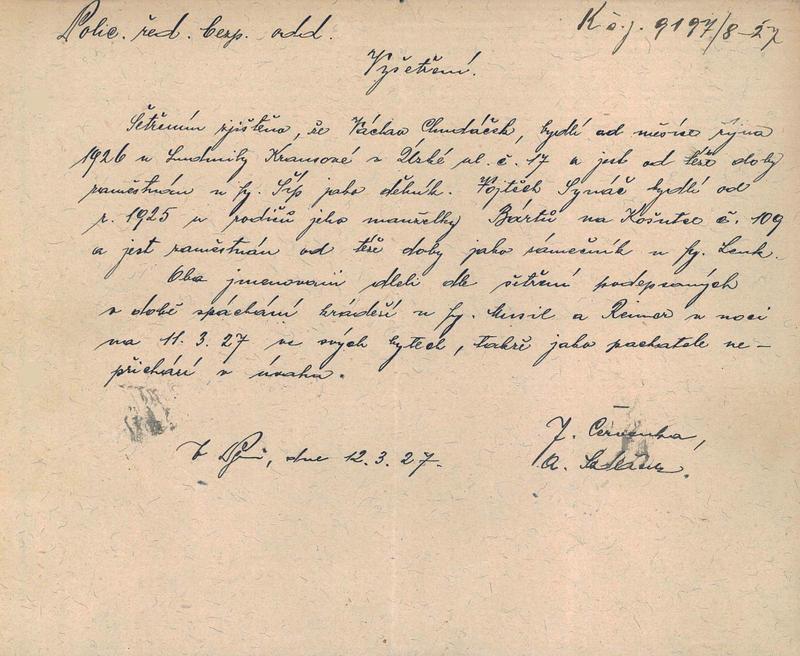 Polic. řed. bezp. odd.
K č. j. 9197/8-27
Vyšetření.
Šetřením zjištěno, že Václav Chudáček, bydlí od měsíce října
1926 u Ludmily Krausové v Úzké ul. č. 17 a jest od téže doby
zaměstnán u fy. Šíp jako dělník. Vojtěch Synáč bydlí od
r. 1925 u rodičů jeho manželky Bártů na Košutce č. 109
a jest zaměstnán od téže doby jako zámečník u fy. Lenk.
Oba jmenovaní dleli dle šetření podepsaných
v době spáchání krádeží u fy. Musil a Reimer v noci
na 11. 3. 27 ve svých bytech, takže jako pachatelé ne-
přichází v úvahu.
V Plzni, dne 12. 3. 27.
J. Červenka,
A.